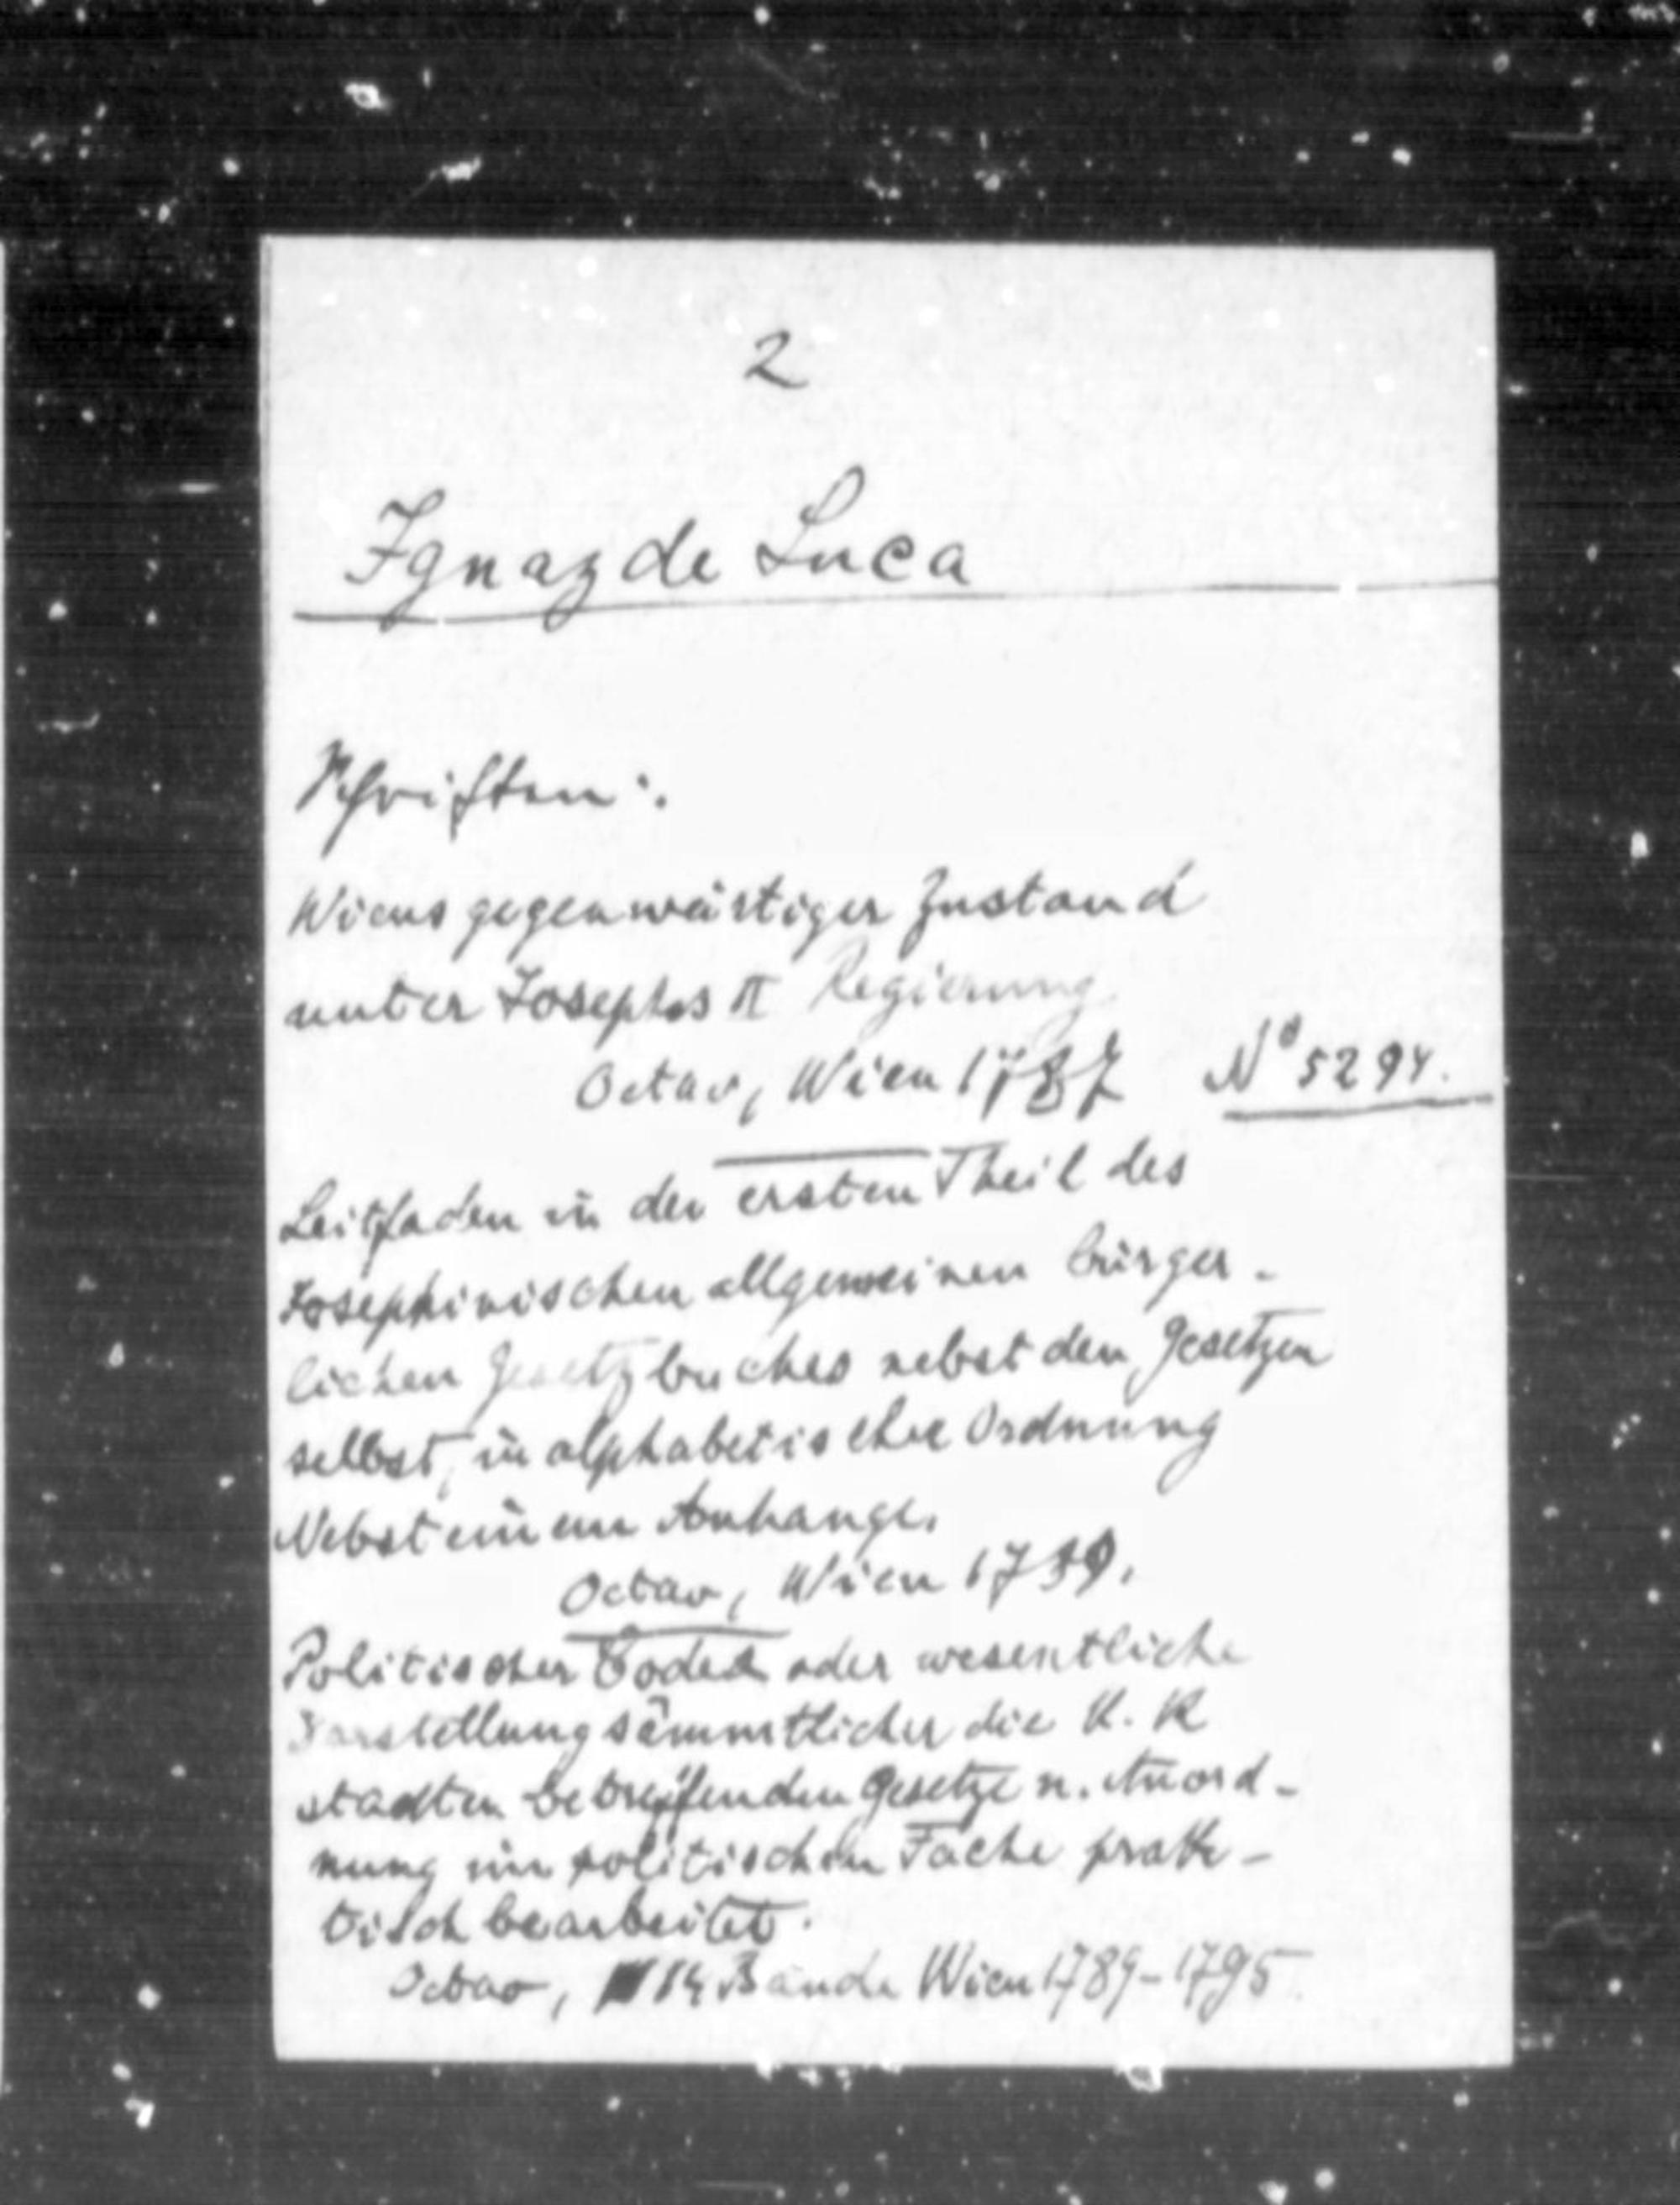 2
Ignaz de Luca
Schriften:
Wiens gegenwärtiger Zustand
unter Josephs II Regierung
Octav, Wien 1787 No 5294.
Leitfaden in den ersten Theil des
Josephinischen allgemeinen bürger-
lichen Gesetzbuches nebst den Gesetzen
selbst, in alphabetischer Ordnung
Nebst einem Anhange.
Octav, Wien 1789.
Politischer Codex oder wesentliche
Darstellung sämmtlicher die K. K
stadten betreffenden Gesetze u. Anord-
nung im politischen Fache prak-
tisch bearbeitet.
Octav, 14 Bände Wien 1789-1795.